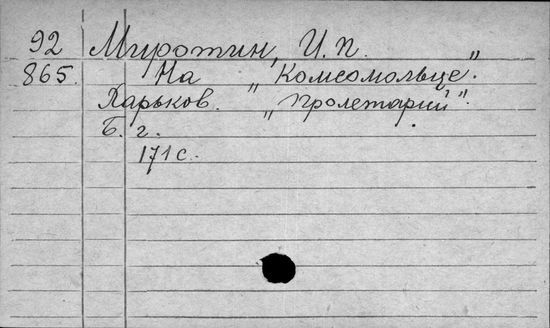 92 Миротин, И. П.
865. На "Комсомольце".
Харьков. "Пролетарий".
Б. г.
171 с.